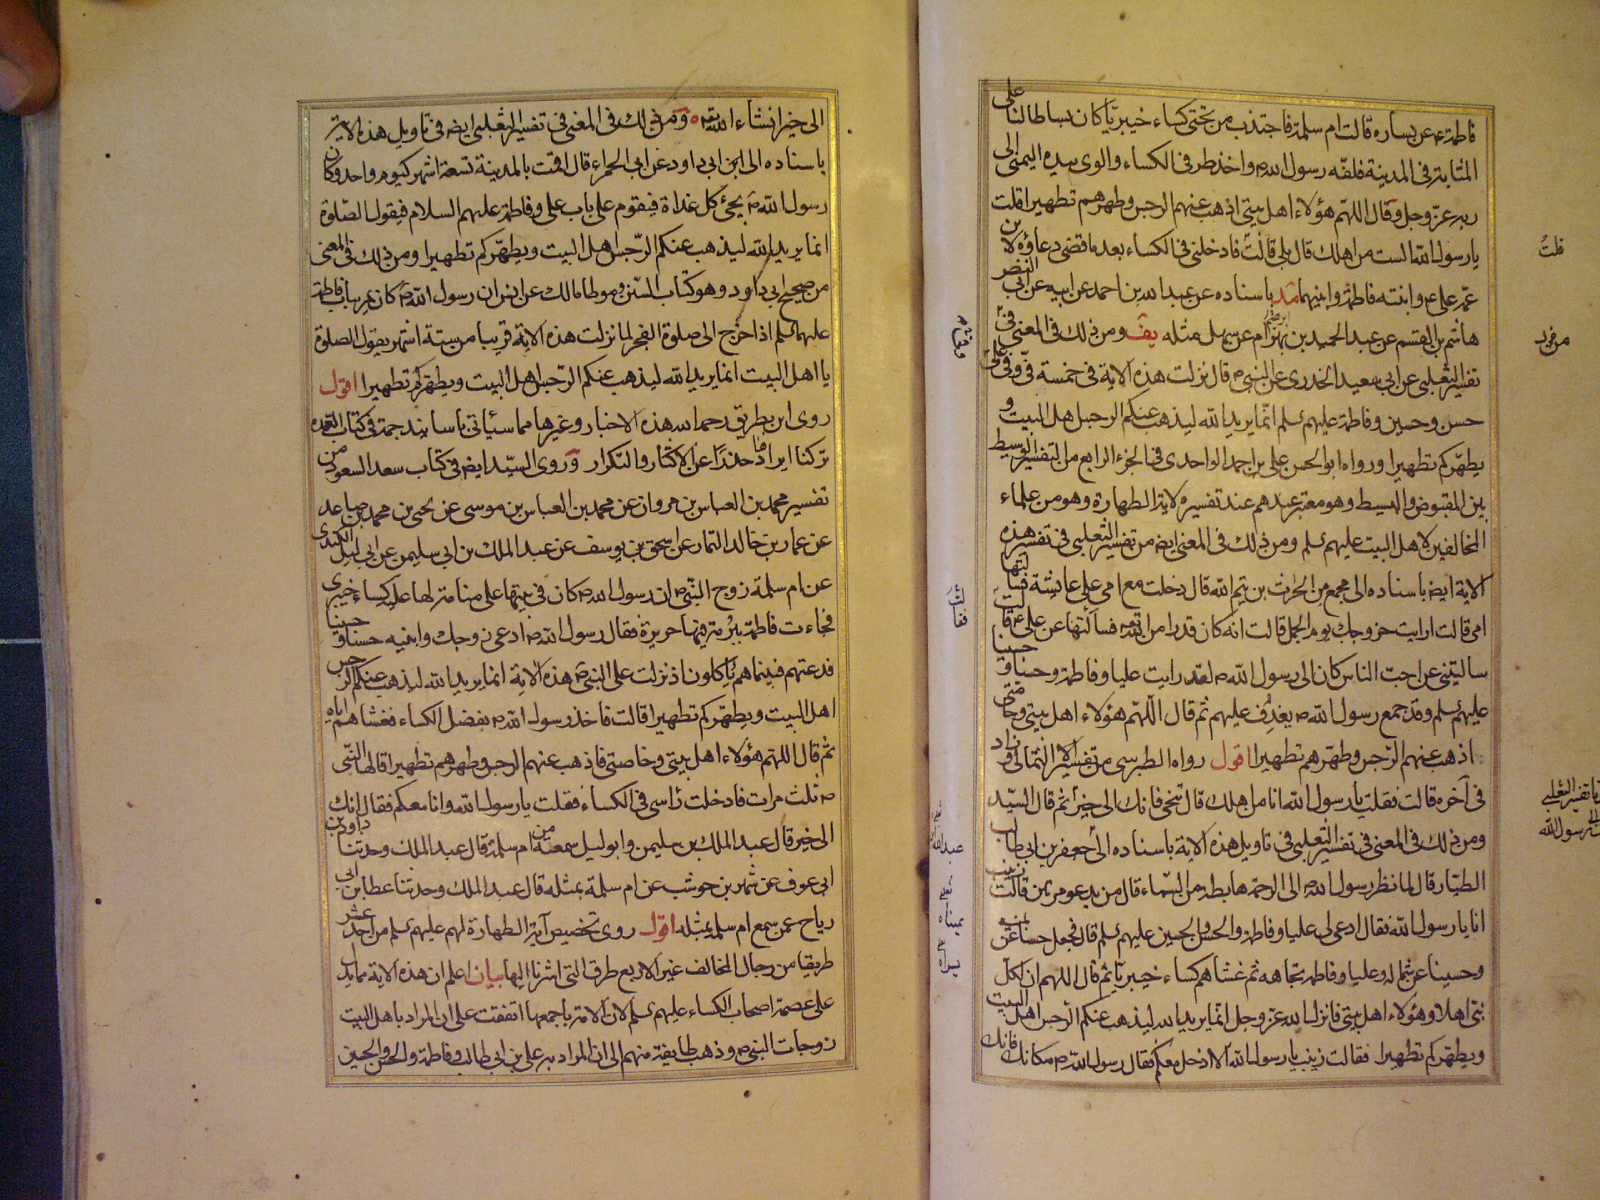 فاطمة عن يساره قالت ام سلمة فاجتذب من تحتى كساء خيبريا كان بساطا لنا على
المثابة فى المدينة فلفه رسول الله ص واخذ طرفى الكساء والوى بيده اليمنى الى
ربه عز وجل وقال اللهم هؤلاء اهل بيتى اذهب عنهم الرجس وطهرهم تطهيرا قلت
يا رسول الله الست من اهلك قال بلى قالت فادخلنى فى الكساء بعد ما قضى دعاؤه لابن
عمه على ع وابنته فاطمة وابنيهما مد باسناده عن عبد الله بن احمد عن ابيه عن ابى النضر
هاشم بن القسم عن عبد الحميد بن بهرام عن سهل مثله يف ومن ذلك فى المعنى فى
تفسير الثعلبى عن ابى سعيد الخدرى عن النبى ص قال نزلت هذه الاية فى خمسة فى وفى على وفى
حسن وحسين وفاطمة عليهم سلم انما يريد الله ليذهب عنكم الرجس اهل البيت و
يطهركم تطهيرا ورواه ابو الحسن على بن احمد الواحدى فى الجزء الرابع من التفسير الوسيط
بين المقبوض والبسيط وهو معتبر عندهم عند تفسيره لاية الطهارة وهو من علماء
المخالفين لاهل البيت عليهم سلم ومن ذلك فى المعنى ايضا من تفسير الثعلبى فى تفسير هذه
الاية ايضا باسناده الى مجمع من الحرث بن تيم الله قال دخلت مع امى على عايشة فسألتها
امى قالت ارايت خروجك يوم الجمل قالت انه كان قدرا من الله فسألتها عن على ع قالت
سالتينى عن احب الناس كان الى رسول الله ص لقد رايت عليا وفاطمة وحسنا وحسينا
عليهم سلم وقد جمع رسول الله ص يغدف عليهم ثم قال اللهم هؤلاء اهل بيتى وحامتى
اذهب عنهم الرجس وطهرهم تطهيرا اقول رواه الطبرسى من تفسير الثمالى وزاد
فى آخره قالت فقلت يا رسول الله انا من اهلك قال تنحى فانك الى خير ثم قال السيد
ومن ذلك فى المعنى فى تفسير الثعلبى فى تاويل هذه الاية باسناده الى جعفر بن ابى طالب
الطيار قال لما نظر رسول الله ص الى الرحمة هابطة من السماء قال من يدعو مرتين قالت زينب
انا يا رسول الله فقال ادعى لى عليا وفاطمة والحسن والحسين عليهم سلم قال فجعل حسنا عن يمينه
وحسينا عن شماله وعليا وفاطمة تجاهه ثم غشاهم كساء خيبريا ثم قال اللهم ان لكل
نبى اهلا وهؤلاء اهل بيتى فانزل الله عز وجل انما يريد الله ليذهب عنكم الرجس اهل البيت
ويطهركم تطهيرا فقالت زينب يا رسول الله الا ادخل معكم فقال رسول الله ص مكانك فانك
قلت
فقالت
الى خير انشاء الله تع ومن ذلك فى المعنى فى تفسير الثعلبى ايضا فى تاويل هذه الاية
باسناده الى ابن ابى داود عن ابى الحمراء قال اقمت بالمدينة تسعة اشهر كيوم واحد وكان
رسول الله ص يجئ كل غداة فيقوم على باب على وفاطمة عليهم السلام فيقول الصلوة
انما يريد الله ليذهب عنكم الرجس اهل البيت ويطهركم تطهيرا ومن ذلك فى المعنى
من صحيح ابى داود وهو كتاب السنن وموطا مالك عن انس ان رسول الله ص كان يمر بباب فاطمة
عليهما سلم اذا خرج الى صلوة الفجر لما نزلت هذه الاية قريبا من ستة اشهر يقول الصلوة
يا اهل البيت انما يريد الله ليذهب عنكم الرجس اهل البيت ويطهركم تطهيرا اقول
روى ابن بطريق رحمه الله هذه الاخبار وغيرها مما سيأتى باسانيد جمة فى كتاب العمدة
تركنا ايرادها حذرا عن الاكثار والتكرار وروى السيد ايضا فى كتاب سعد السعود من
تفسير محمد بن العباس بن مروان عن محمد بن العباس بن موسى عن يحيى بن محمد بن صاعد
عن عمار بن خالد التمار عن اسحق بن يوسف عن عبد الملك بن ابى سليمن عن ابى ليلى الكندى
عن ام سلمة زوج النبى ص ان رسول الله ص كان فى بيتها على منامة لها عليه كساء خيبرى
فجاءت فاطمة ببرمة فيها حريرة فقال رسول الله ص ادعى زوجك وابنيه حسنا وحسينا
فدعتهم فبينما هم يأكلون اذ نزلت على النبى ص هذه الاية انما يريد الله ليذهب عنكم الرجس
اهل البيت ويطهركم تطهيرا قالت فاخذ رسول الله ص بفضل الكساء فغشاهم اياه
ثم قال اللهم هؤلاء اهل بيتى وخاصتى فاذهب عنهم الرجس وطهرهم تطهيرا قالها النبى
ص ثلث مرات فادخلت رأسى فى الكساء فقلت يا رسول الله وانا معكم فقال انك
الى خير قال عبد الملك بن سليمن وابو ليلى سمعته من ام سلمة قال عبد الملك وحدثنا داود بن
ابى عوف عن شهر بن حوشب عن ام سلمة بمثله قال عبد الملك وحدثنا عطا بن ابى
رياح عمن سمع ام سلمة بمثله اقول روى تخصيص آية الطهارة لهم عليهم سلم من احد عشر
طريقا من رجال المخالف غير الاربع طرق التى اشرنا اليها بيان اعلم ان هذه الاية مما يدل
على عصمة اصحاب الكساء عليهم سلم لان الامة باجمعها اتفقت على ان المراد باهل البيت
زوجات النبى ص وذهب طايفة منهم الى ان المراد به على بن ابى طالب وفاطمة والحسن والحسين